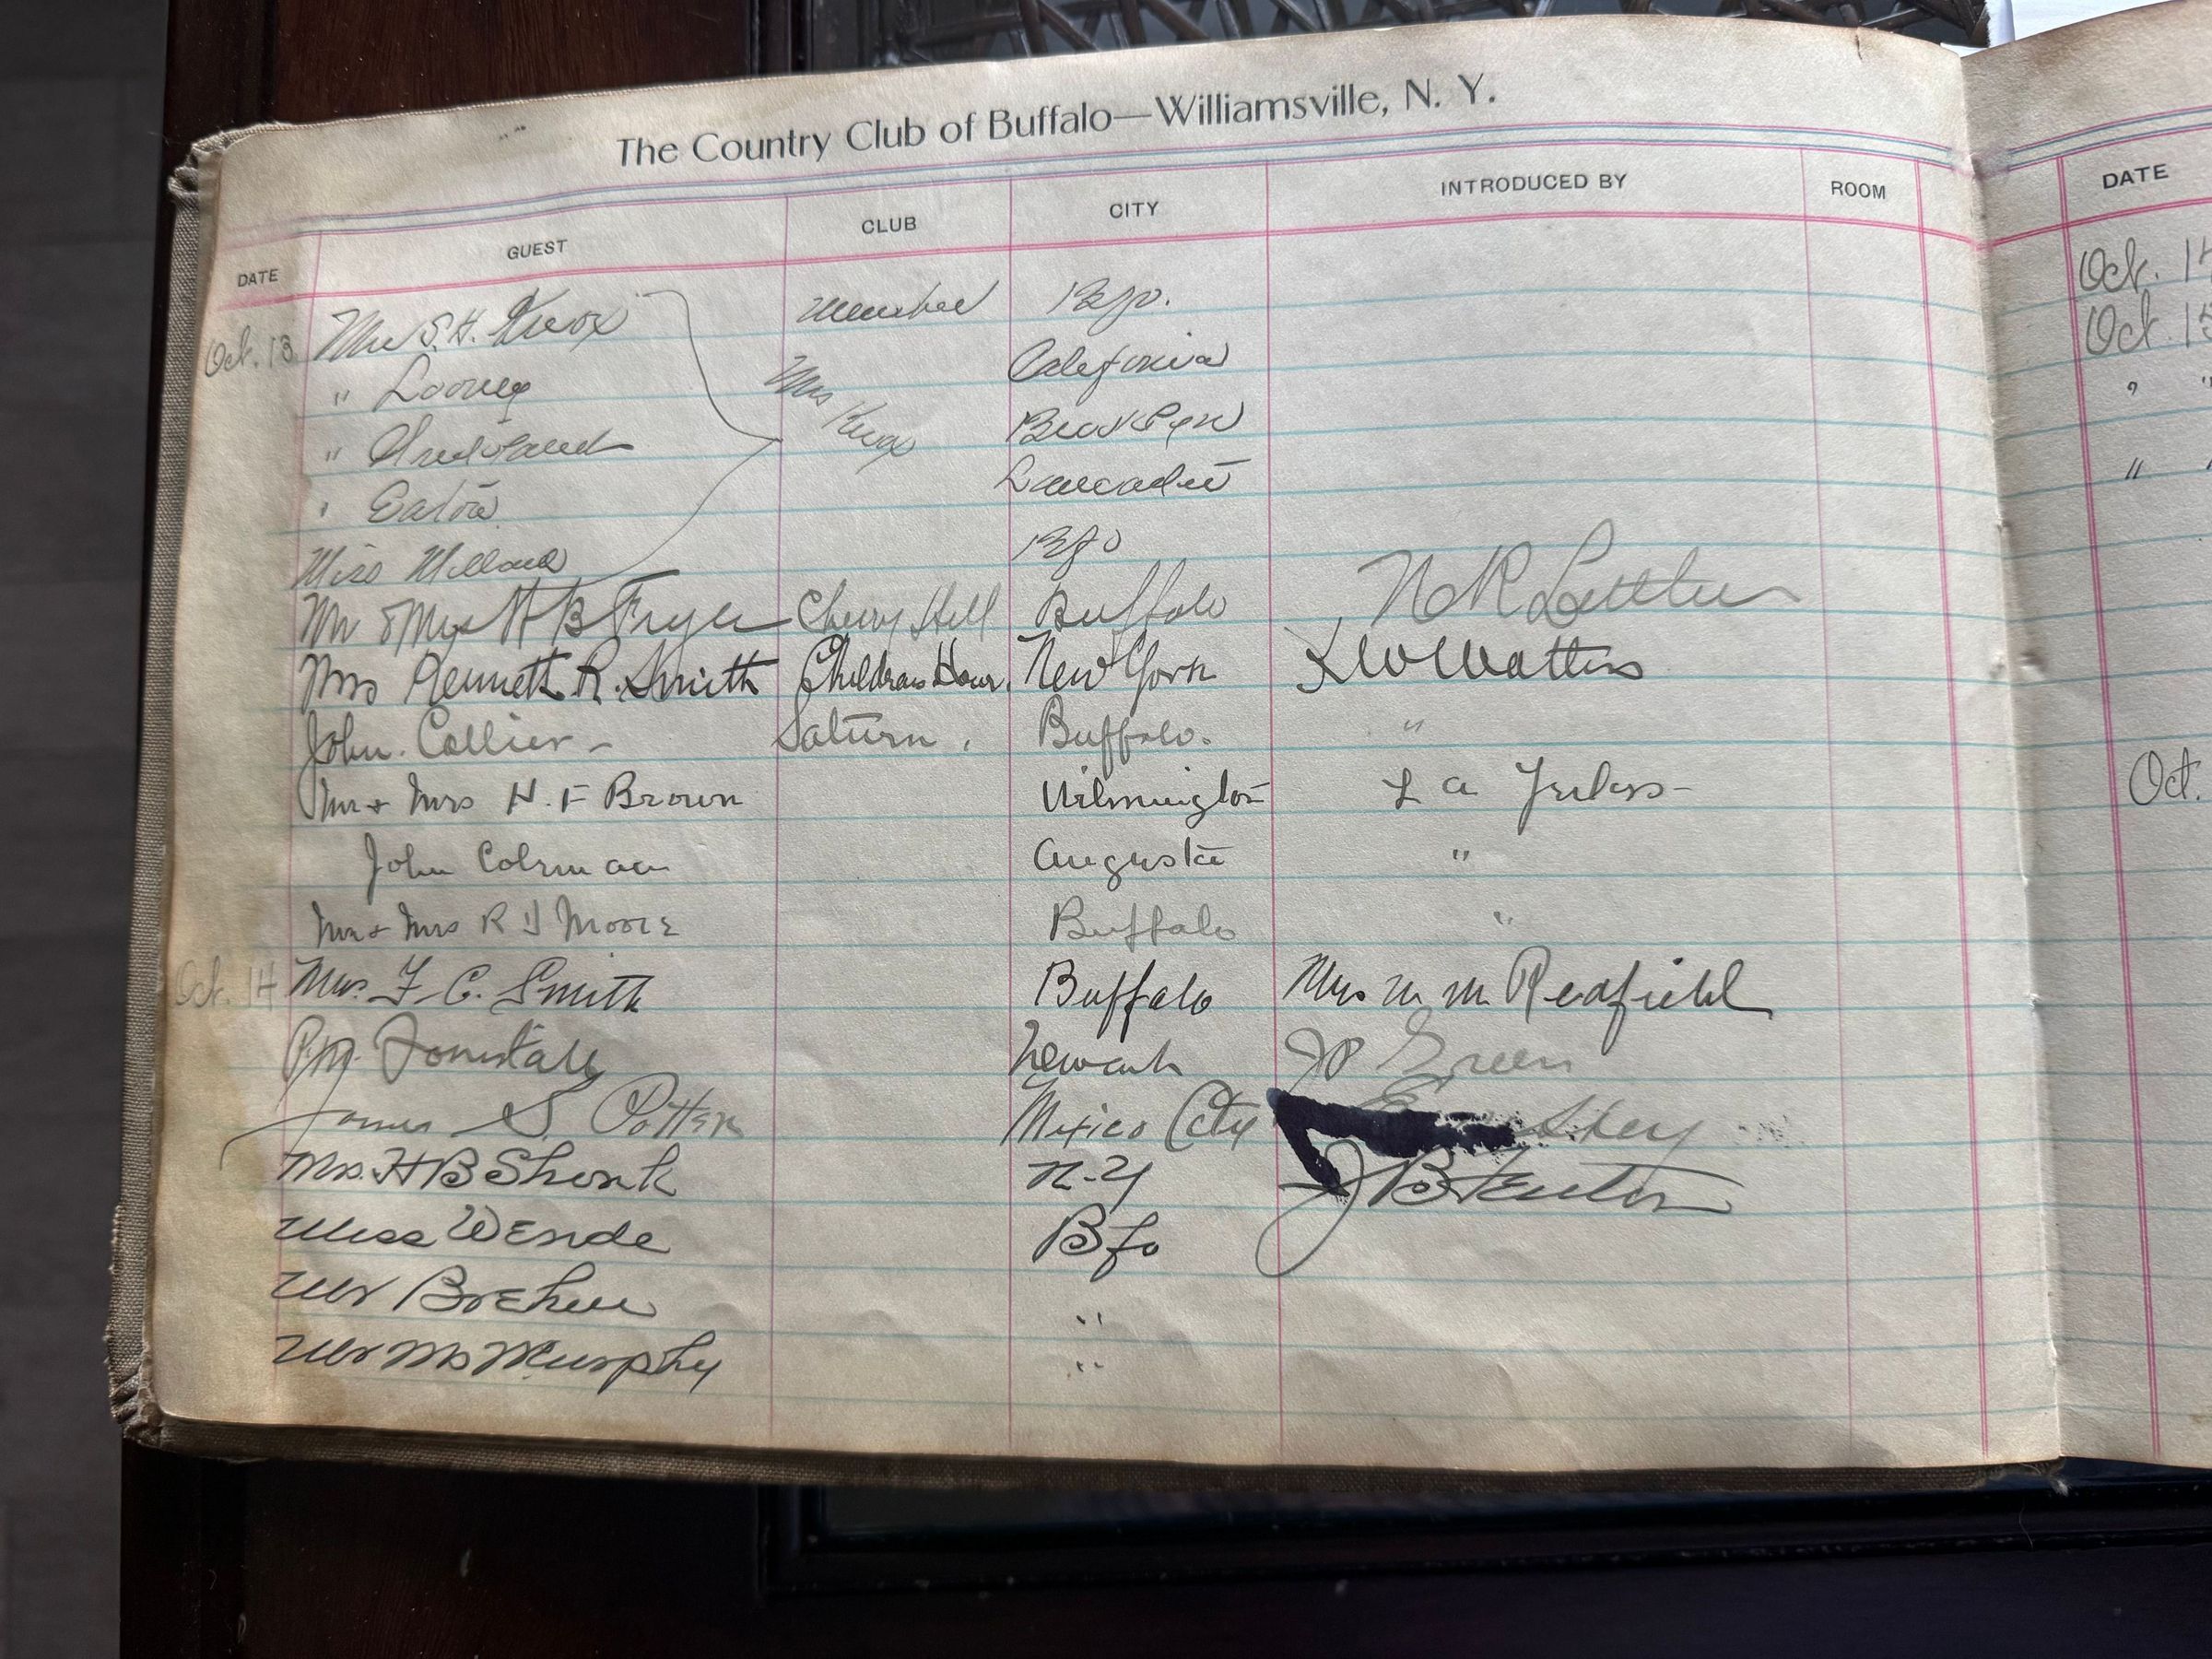 The Country Club of Buffalo—Williamsville, N. Y.
DATE GUEST CLUB CITY INTRODUCED BY ROOM
Oct. 13 Mrs S. H. Knox Member Bfo.
" Looney Mrs Knox California
" Brooklyn
" Eaton Lancaster
Miss Millard Bfo
Mr & Mrs H B Fryer Cherry Hill Buffalo
Mrs Kenneth R. Smith Childrens Hour. New York Watkins
John Collier - Saturn. Buffalo. "
Mr + Mrs H. F Brown Wilmington L a
John Colman Augusta "
Mr + Mrs R J Moore Buffalo "
Oct. 14 Mrs. F. C. Smith Buffalo Mrs m m Redfield
P. M. Newark JP Green
James S. Potter Mexico City
Mrs. H B Shonk N-Y J B
Miss Wende Bfo
Mr "
Mr Murphy "
DATE
Oct. 14
Oct 15
" "
" "
Oct.